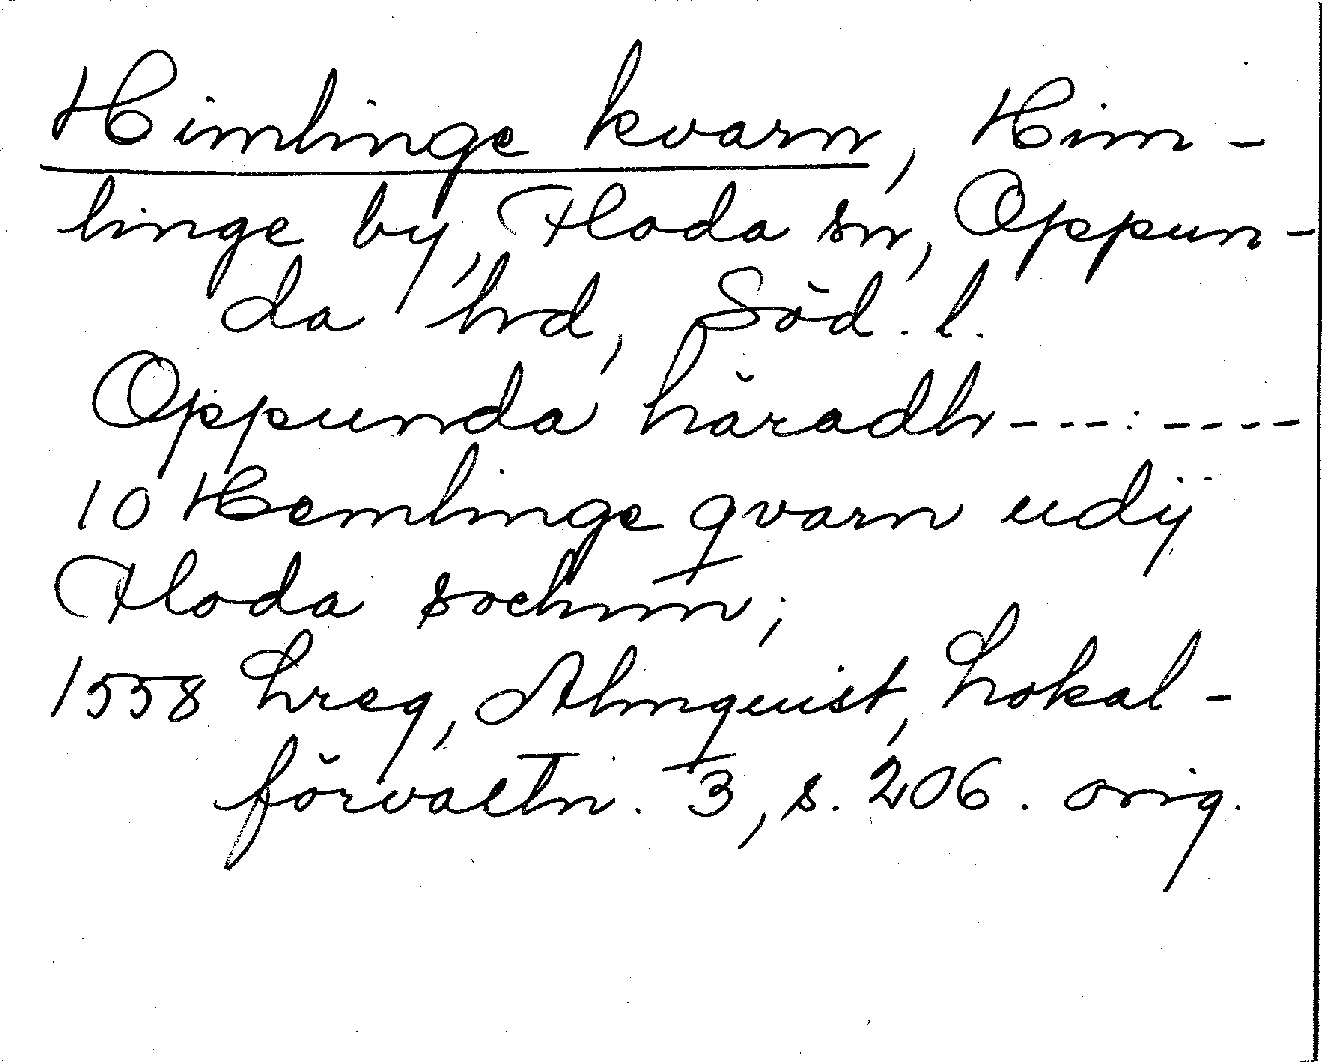 Himlinge kvarn, Him-
linge by, Floda sn, Oppun-
da hd, Söd. l.
Oppunda häradh ---:----
10 Hemlinge qvarn udÿ
Floda sochnn;
1558 hreg, Almquist, Lokal-
förvaltn. 3, s. 206. orig.